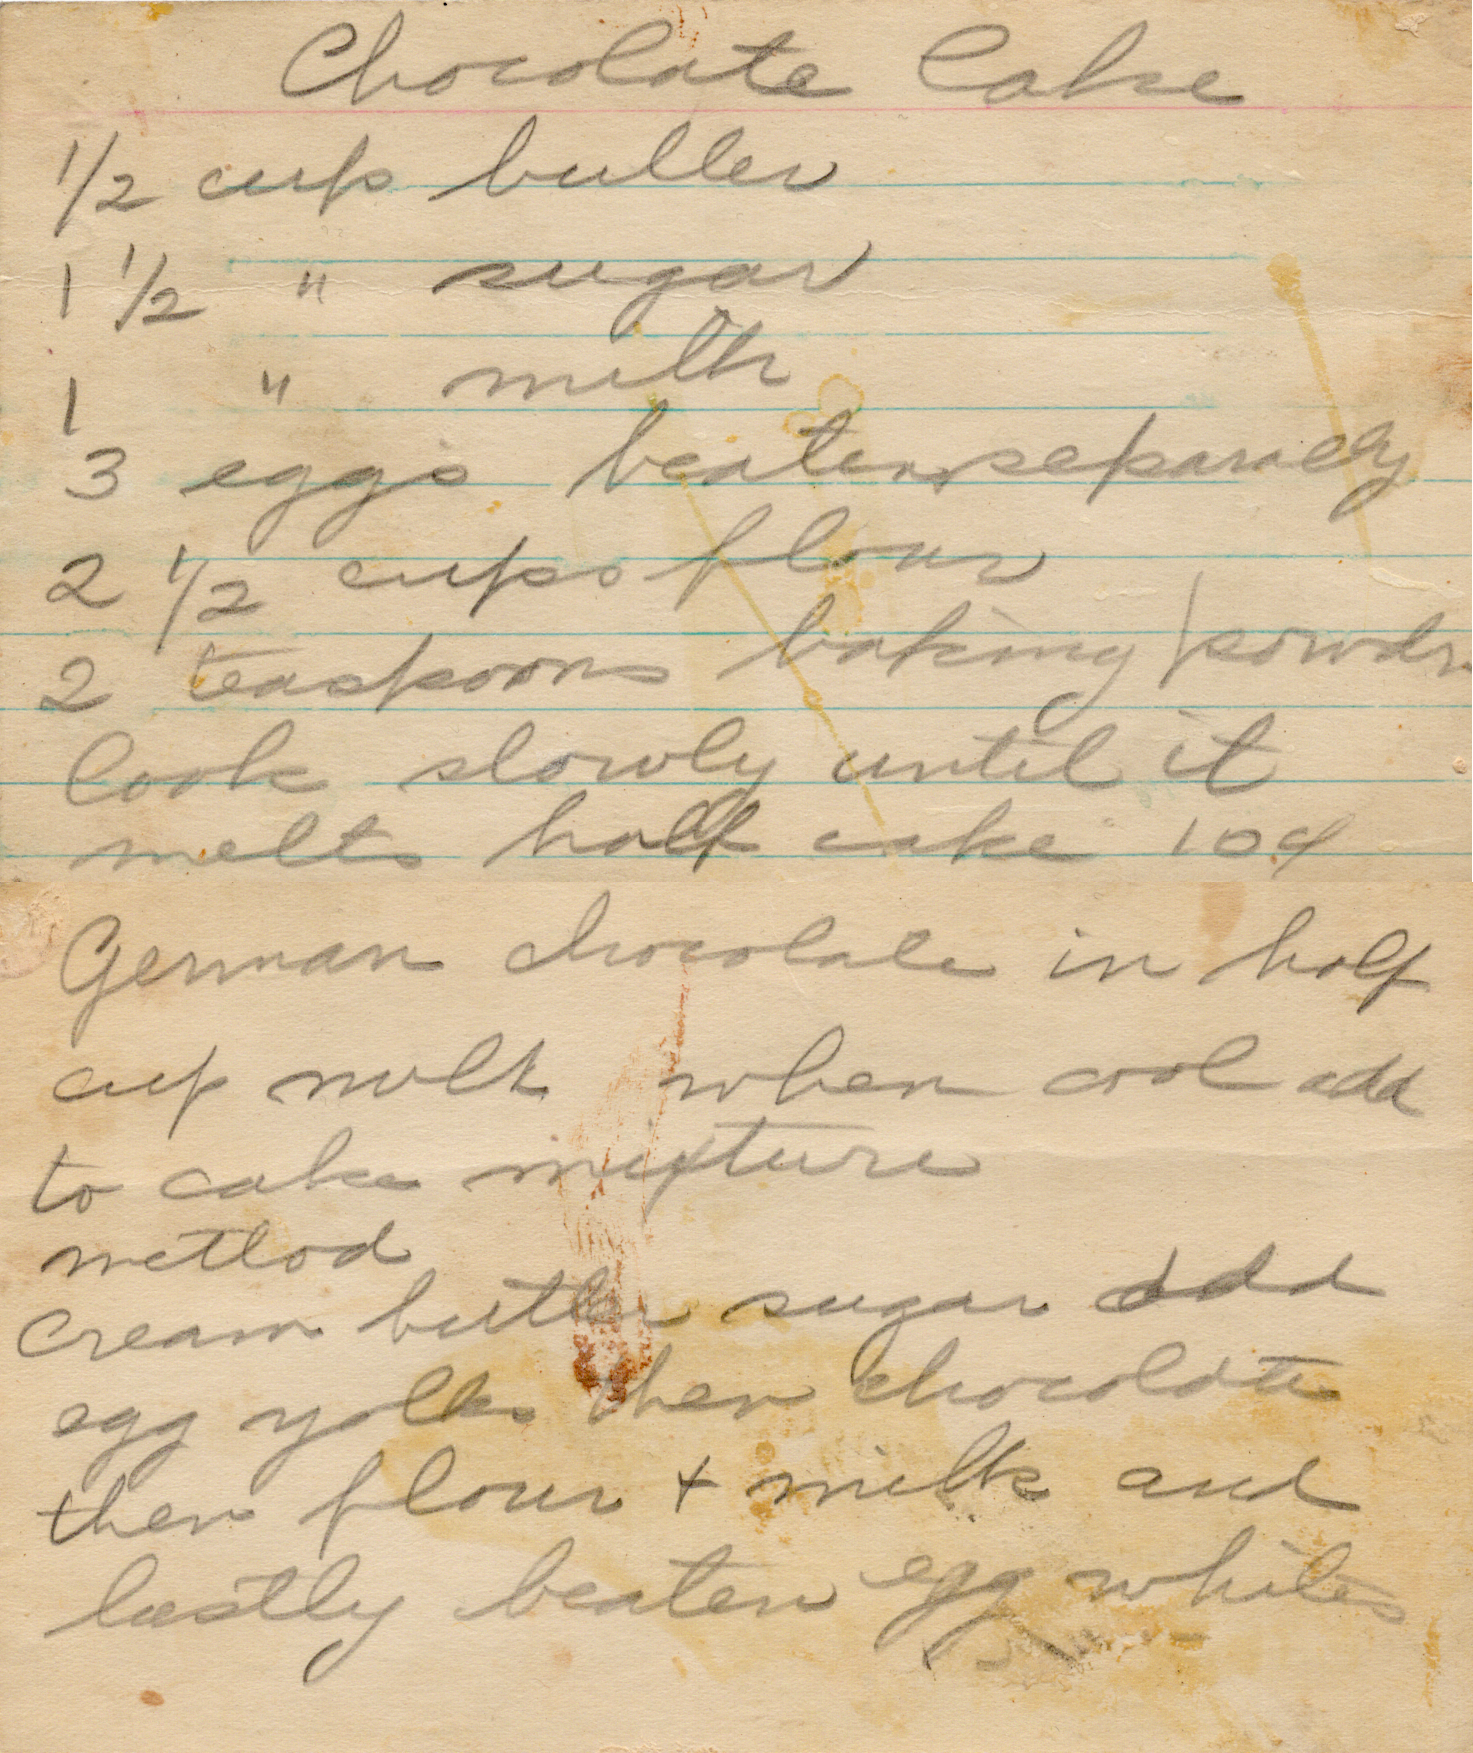 Chocolate Cake
1/2 cup butter
1 1/2 " sugar
1 " milk
3 eggs beaten separaely
2 1/2 cups flour
2 teaspoons baking powdr
Cook slowly until it
melts half cake 10¢
German chocolate in half
cup milk when cool add
to cake mixture
method
Cream butter sugar add
egg yolks then chocolate
then flour + milk and
lastly beaten egg whites